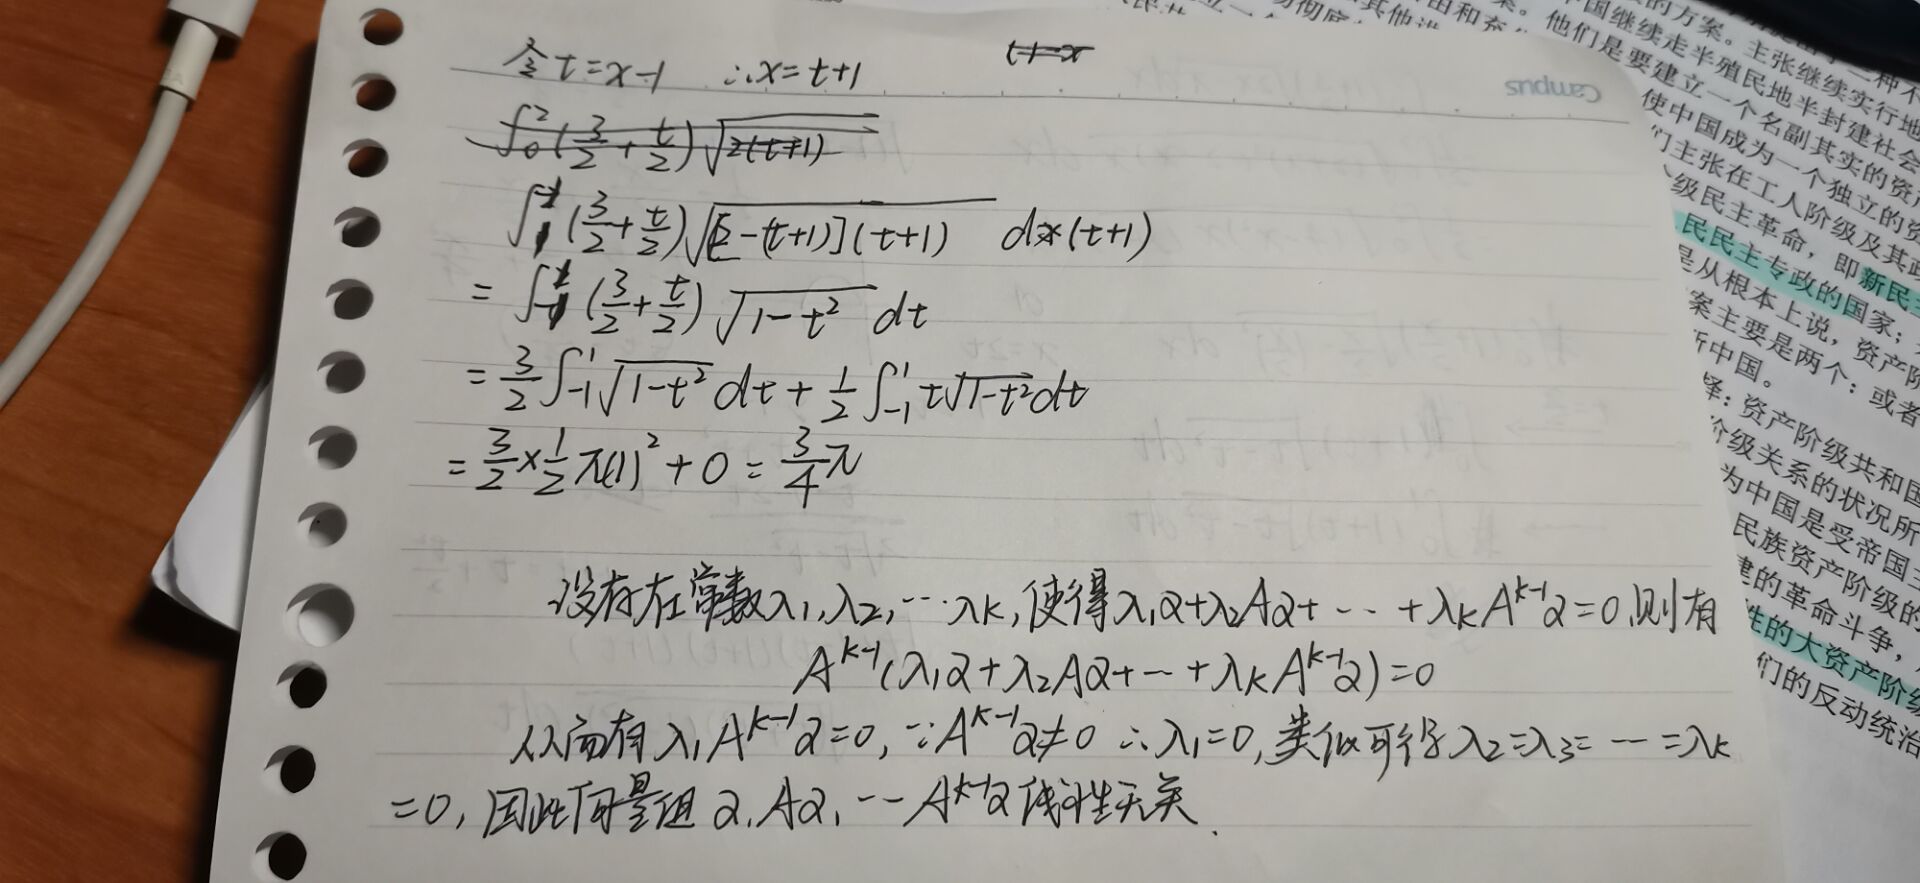 令t=x-1 ∴x=t+1
t+1=x
∫₀²(3/2+t/2)√2(t+1)
∫₋₁¹(3/2+t/2)√[2-(t+1)](t+1) d(t+1)
=∫₋₁¹(3/2+t/2)√1-t² dt
=3/2∫₋₁¹√1-t² dt+1/2∫₋₁¹t√1-t²dt
=3/2×1/2π(1)²+0=3/4π
设存在常数λ₁,λ₂,…λk,使得λ₁α+λ₂Aα+…+λkAᵏ⁻¹α=0,则有
Aᵏ⁻¹(λ₁α+λ₂Aα+…+λkAᵏ⁻¹α)=0
从而有λ₁Aᵏ⁻¹α=0,∵Aᵏ⁻¹α≠0 ∴λ₁=0,类似可得λ₂=λ₃=…=λk
=0,因此向量组α,Aα,…Aᵏ⁻¹α线性无关.
Campus
的方案。主张继续实行地
中国继续走半殖民地半封建社会
他们是要建立一个名副其实的资产
使中国成为一个独立的资
们主张在工人阶级及其政
级民主革命，即新民主
民民主专政的国家；
是从根本上说，资产阶
案主要是两个：或者
所中国。
择：资产阶级共和国
阶级关系的状况所
为中国是受帝国主
民族资产阶级的
建的革命斗争，
性的大资产阶级
们的反动统治